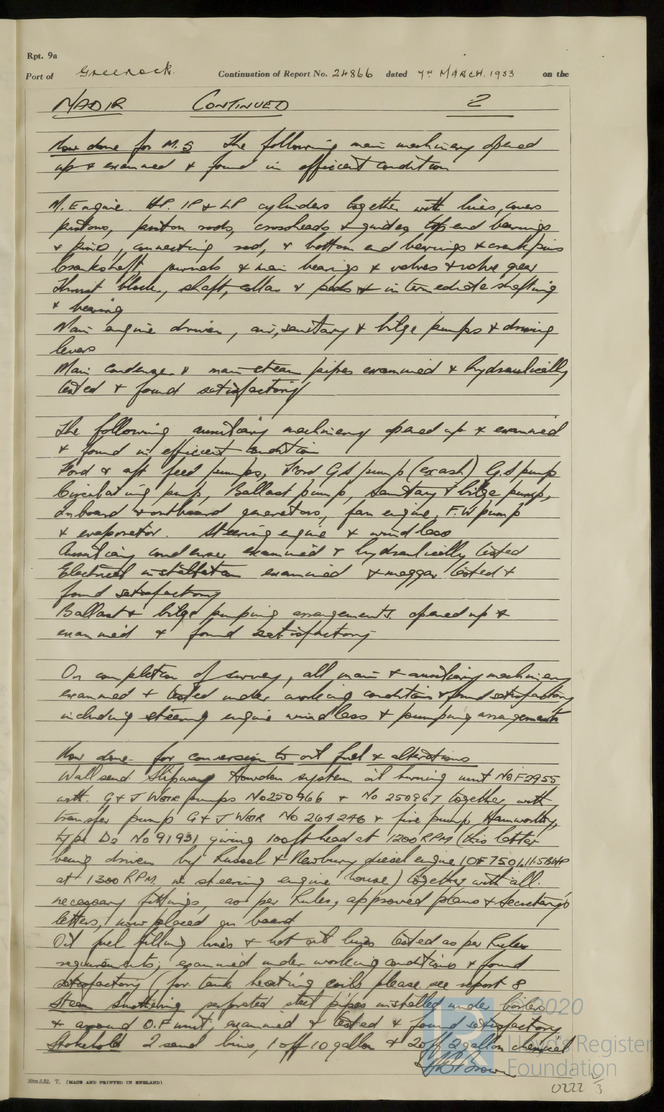 Rpt. 9a
Port of Greenock. Continuation of Report No. 24866 dated 7TH MARCH. 1953 on the
MADIR CONTINUED 2
Now done for M.S The following main machinery opened
up & examined & found in efficient condition
M. Engine. HP. IP & LP cylinders together with lines, covers
pistons, piston rods, crossheads & guides top end bearings
& pins, connecting rod, & bottom end bearings & crank pins
Crankshaft journals & main bearings & valves & valve gear
Thrust block, shaft, collar & pads & intermediate shafting
& bearing
Main engine driven, air, sanitary & bilge pumps & driving
levers
Main condenser & main steam pipes examined & hydraulically
tested & found satisfactory
The following auxiliary machinery opened up & examined
& found in efficient condition
Ford & aft feed pumps, Ford G.S pump (ex ash) G.S pump
Circulating pump, Ballast pump, Sanitary & bilge pump,
Inboard & outboard generators, fan engine, F.W pump
& evaporator. Steering engine & windlass
Auxiliary condenser examined & hydraulically tested
Electrical installation examined & megger tested &
found satisfactory
Ballast & bilge pumping arrangements opened up &
examined & found satisfactory
On completion of survey, all main & auxiliary machinery
examined & tested under working conditions & found satisfactory
including steering engine windlass & pumping arrangements
Now done for conversion to oil fuel & alterations
Wallsend Slipway Howden system oil burning unit No F2955
with G & J WEIR pumps No 250966 & No 250967 together with
transfer pump G & J WEIR No 264246 & fire pump Hamworthy
type D2 No 91931 giving 100 ft head at 1200 RPM (this latter
being driven by Russel & Newbury diesel engine 11.5 BHP
at 1300 RPM in steering engine house) together with all
necessary fittings as per Rules, approved plans & Secretary's
letters, now placed on board
Oil fuel filling lines & hot oil lines tested as per Rules
requirements, examined under working conditions & found
satisfactory (for tank heating coils please see report 8
Steam smothering perforated steel pipes installed under boilers
& around O.F unit, examined & tested & found satisfactory
Stokehold 2 sand bins, 1 off 10 gallon & 2 off 2 gallon chemical
© 2020
Lloyd's Register
Foundation
(MADE AND PRINTED IN ENGLAND)
0222 D/3